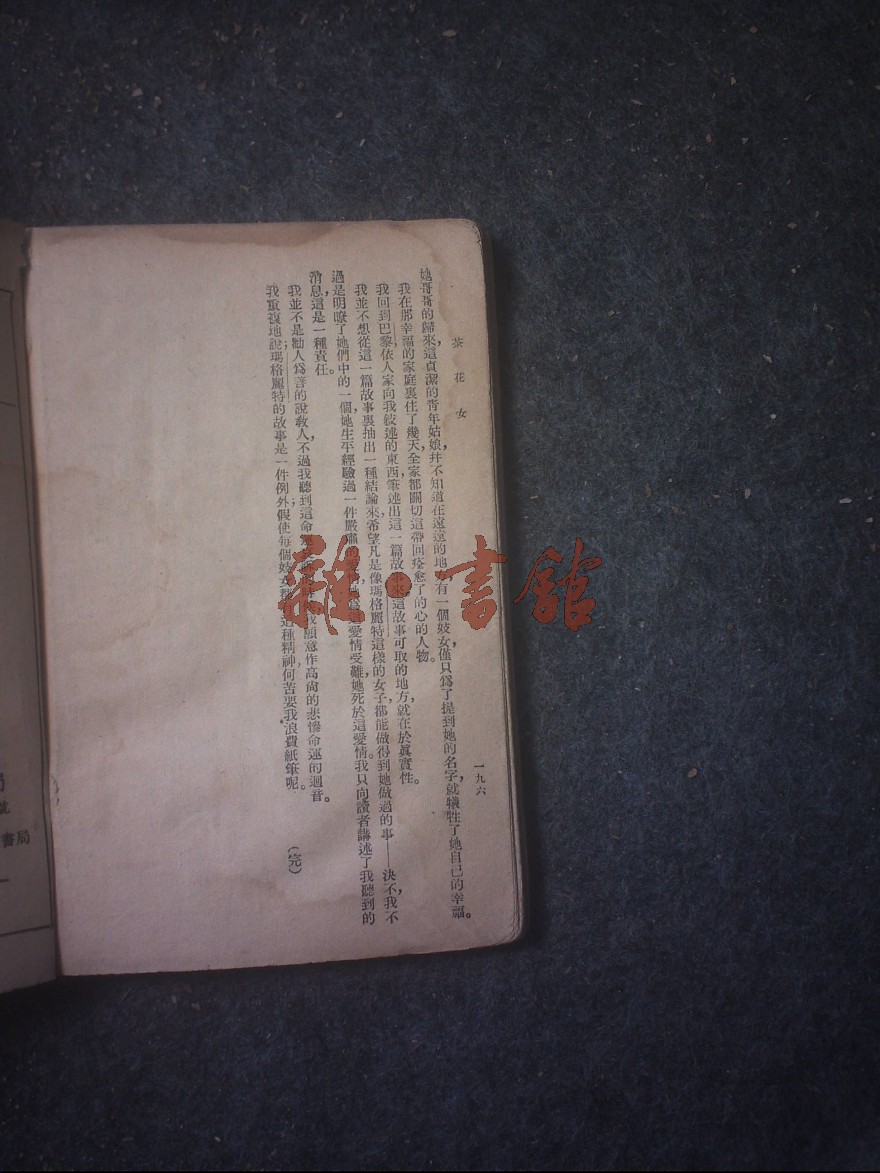 茶花女
一九六
她哥哥的歸來，這貞潔的青年姑娘，幷不知道在遠遠的地，有一個妓女，僅只爲了提到她的名字，就犧牲了她自己的幸福。
我在那幸福的家庭裏住了幾天，全家都關切這帶回痊愈了的心的人物。
我回到巴黎，依人家向我敍述的東西，筆述出這一篇故事來，這故事可取的地方，就在於眞實性。
我並不想從這一篇故事裏抽出一種結論來，希望凡是像瑪格麗特這樣的女子，都能做得到她做過的事——決不，我不
過是明瞭了她們中的一個，她生平經驗過一件嚴肅的愛情受難，她死於這愛情。我只向讀者講述了我聽到的
消息，這是一種責任。
我並不是勸人爲善的說敎人，不過我聽到這命運我願意作高尙的悲慘命運的迴音。
我重複地說；瑪格麗特的故事是一件例外；假使每個妓女都有這種精神，何苦要我浪費紙筆呢。
（完）
局
號
書局
雜·書館